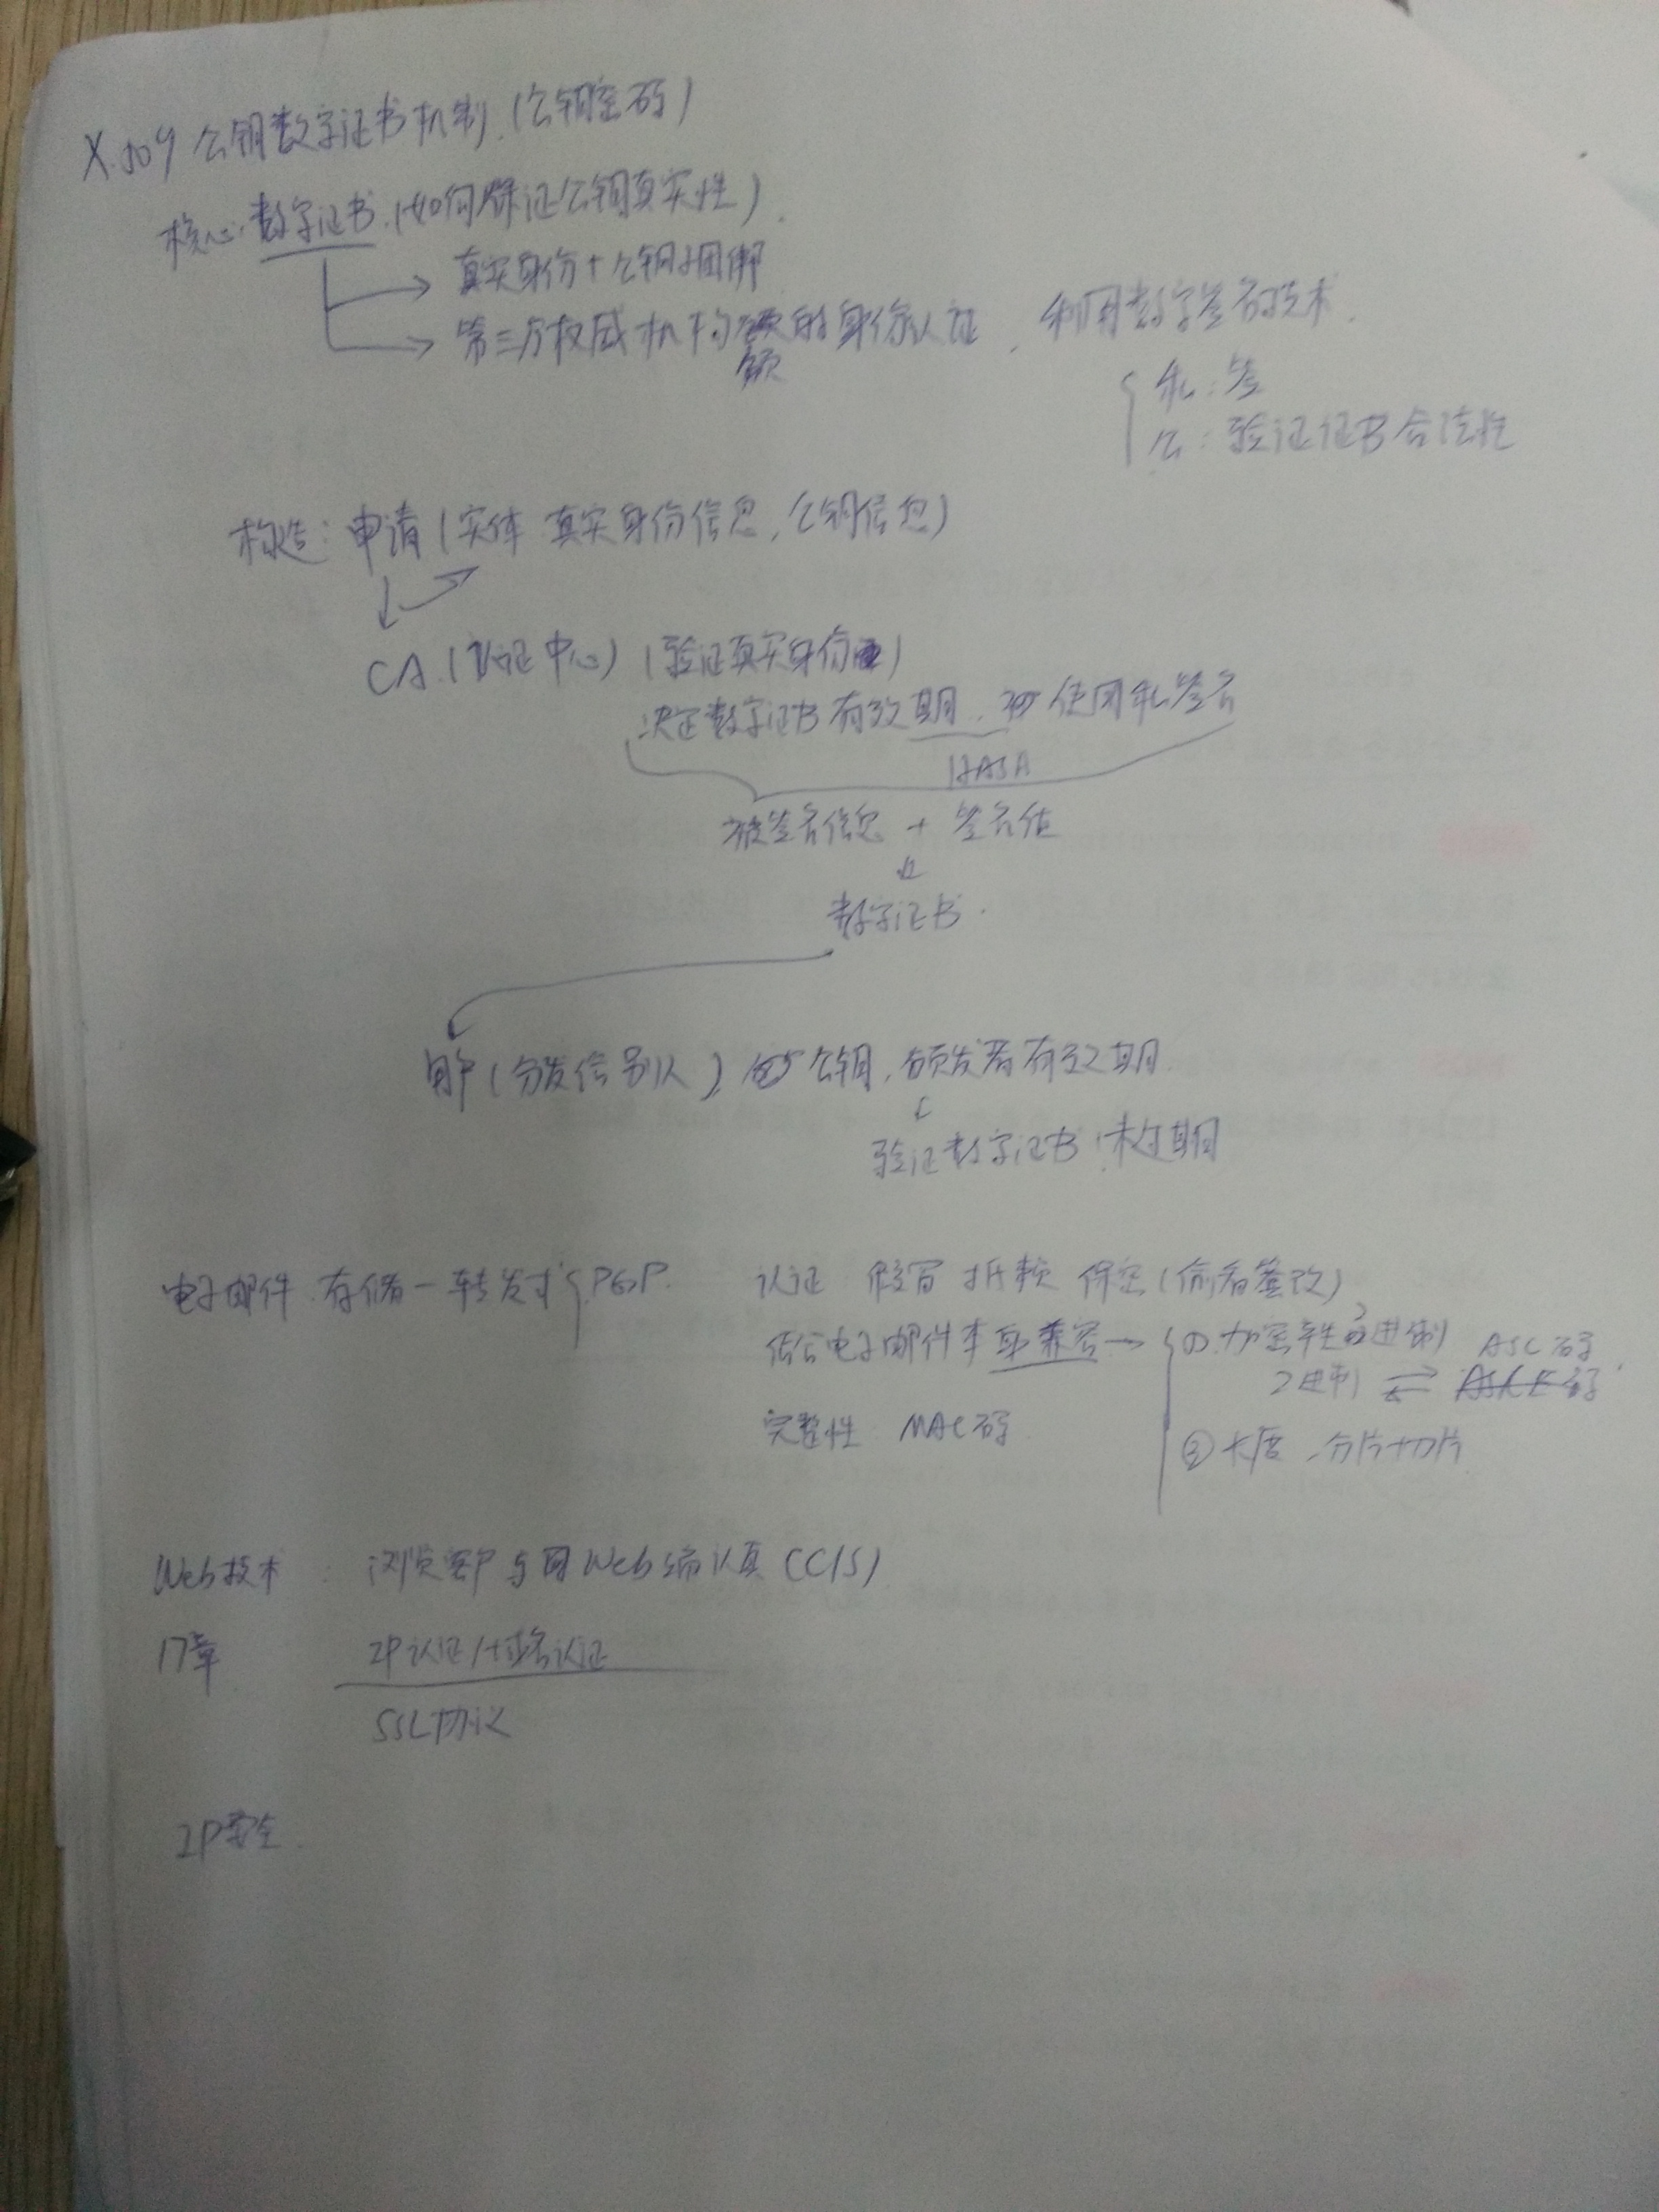 X.509 公钥数字证书机制.(公钥密码)
核心:数字证书.(如何保证公钥真实性).
真实身份+公钥捆绑
第三方权威机构颁的身份认证, 利用数字签名技术.
私:签
公:验证证书合法性
构造:申请(实体 真实身份信息,公钥信息)
CA.(认证中心)(验证真实身份)
决定数字证书有效期. 使用私签名
HASH
被签名信息 + 签名值
数字证书.
用户(分发给别人) 公钥,颁发者有效期.
验证数字证书,未过期
电子邮件 存储-转发 PGP. 认证 假冒 抵赖 保密(偷看篡改)
电子邮件本身兼容→ ①加密 2进制 ASC码
2进制 ⇌
完整性 MAC码 ②长度,分片+切片
Web技术: 浏览客户与 Web端认真(C/S)
17章 IP认证/+域名认证
SSL协议
IP安全.